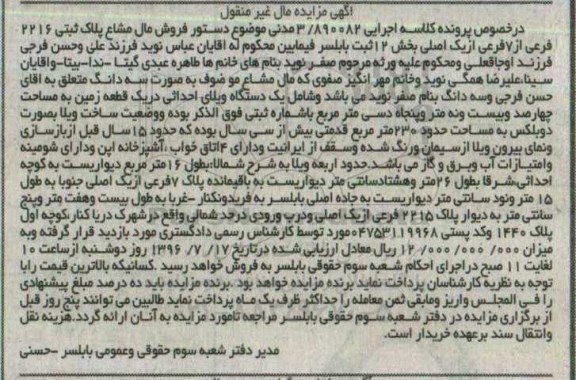 آگهی مزایده مال غیر منقول
درخصوص پرونده کلاسه اجرایی ۳/۸۹۰۰۸۲ مدنی موضوع دستور فروش مال مشاع پلاک ثبتی ۲۲۱۶
فرعی از ۷فرعی ازیک اصلی بخش ۱۲ثبت بابلسر فیمابین محکوم له اقایان عباس نوید فرزند علی وحسن فرجی
فرزند اوجاقعلی ومحکوم علیه ورثه مرحوم صفر نوید بنام های خانم ها طاهره عبدی گیتا -ندا-بیتا-واقایان
سینا،علیرضا همگی نوید وخانم مهر انگیز صفوی که مال مشاع مو ضوف به صورت سه دانگ متعلق به اقای
حسن فرجی وسه دانگ بنام صفر نوید می باشد وشامل یک دستگاه ویلای احداثی دریک قطعه زمین به مساحت
چهارصد وبیست ونه متر وپنجاه دسی متر مربع باشماره ثبتی فوق الذکر بوده ووضعیت ساخت ویلا بصورت
دوبلکس به مساحت حدود ۲۳۰متر مربع قدمتی بیش از سی سال بوده که حدود ۱۵سال قبل ازبازسازی
ونمای بیرون ویلا ازسیمان ورنگ شده وسقف از ایرانیت ودارای ۴اتاق خواب ،آشپزخانه اپن ودارای شومینه
وامتیازات آب وبرق و گاز می باشد.حدود اربعه ویلا به شرح شمالا:بطول ۱۶متر مربع دیواریست به کوچه
احداثی،شرقا بطول ۲۶متر وهشتادسانتی متر دیواریست به باقیمانده پلاک ۷فرعی ازیک اصلی جنوبا به طول
۱۵ متر ونود سانتی متر دیواریست به جاده اصلی بابلسر به فریدونکنار -غربا به طول بیست وهفت متر وپنج
سانتی متر به دیوار پلاک ۲۲۱۵ فرعی ازیک اصلی ودرب ورودی درحد شمالی واقع درشهرک دریا کنار،کوچه اول
پلاک ۱۴۴۰ وکد پستی ۰۴۷۵۳۱۱۹۹۶۸مورد توسط کارشناس رسمی دادگستری مورد بازدید قرار گرفته وبه
میزان ۱۲/۰۰۰/۰۰۰/۰۰۰ ریال معادل ارزیابی شده درتاریخ ۱۷/ ۷/ ۱۳۹۶ روز دوشنبه ازساعت ۱۰
لغایت ۱۱ صبح دراجرای احکام شعبه سوم حقوقی بابلسر به فروش خواهد رسید .کسانیکه بالاترین قیمت رابا
توجه به نظریه کارشناسان پرداخت نماید برنده مزایده خواهد بود .برنده مزایده باید ده درصد مبلغ پیشنهادی
را فی المجلس واریز ومابقی ثمن معامله را حداکثر ظرف یک ماه پرداخت نماید طالبین می توانند پنج روز قبل
از برگزاری مزایده در دفتر شعبه سوم حقوقی بابلسر مراجعه تامورد مزایده به آنان ارائه گردد.هزینه نقل
وانتقال سند برعهده خریدار است.
مدیر دفتر شعبه سوم حقوقی وعمومی بابلسر -حسنی